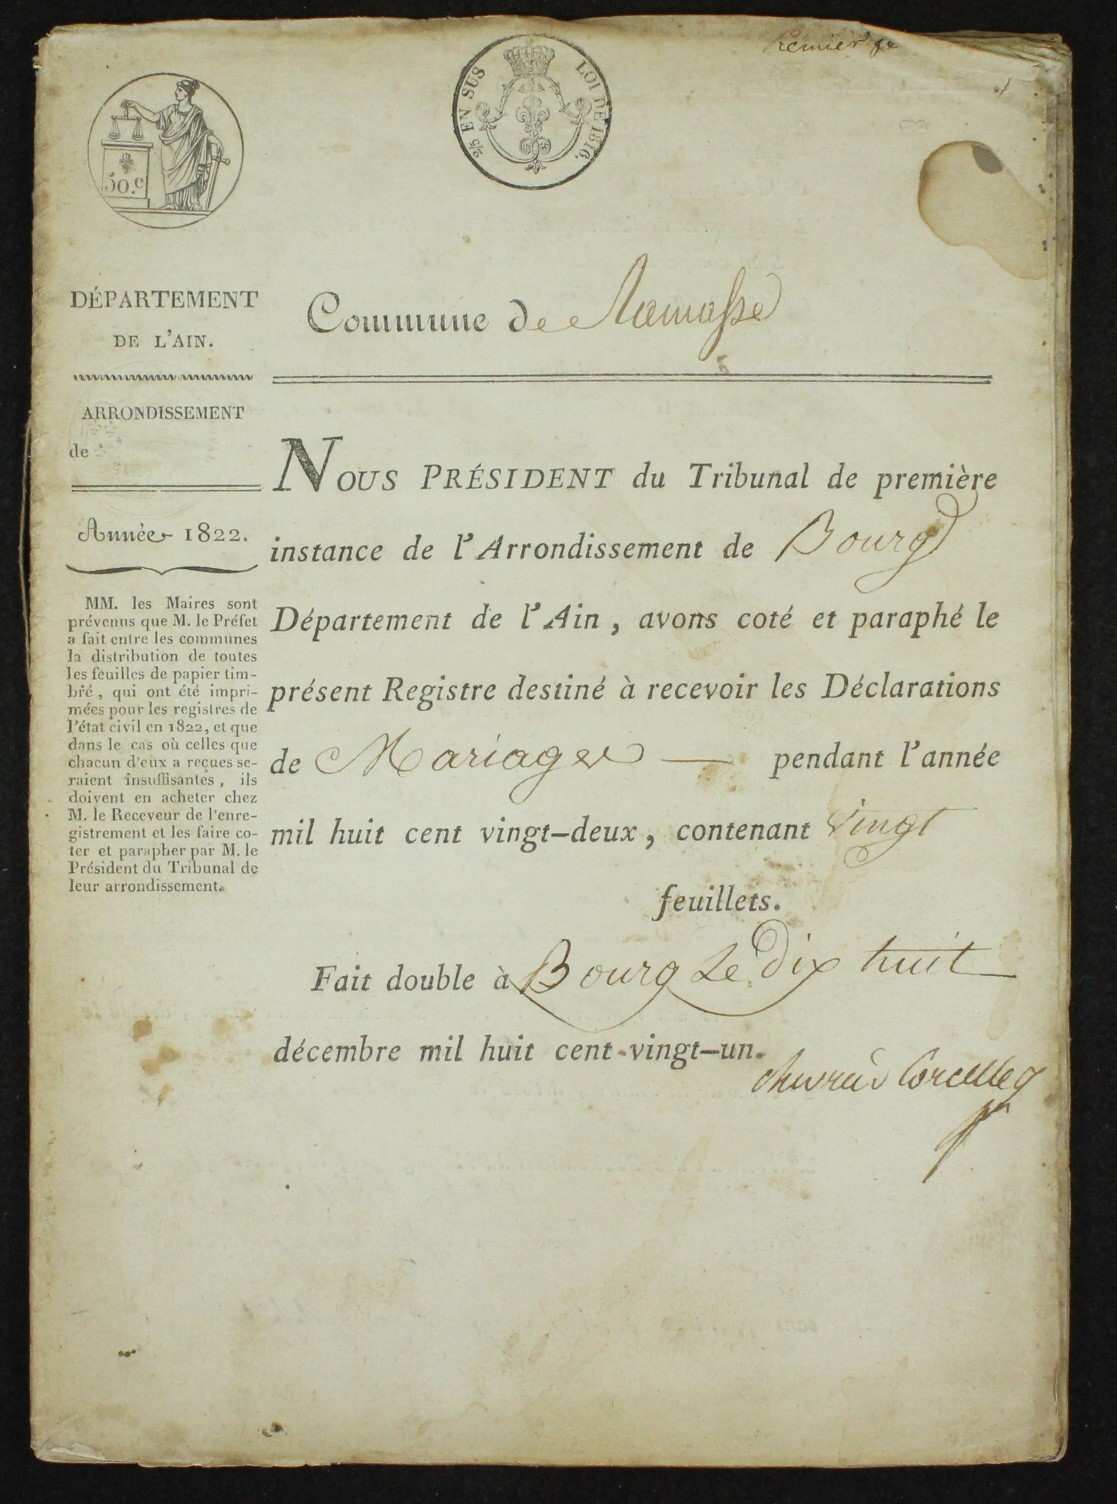 Premier
1
2/5 EN SUS
LOI DE 1816.
50.c
DÉPARTEMENT
DE L'AIN.
ARRONDISSEMENT
de
Année 1822.
MM. les Maires sont
prévenus que M. le Préfet
a fait entre les communes
la distribution de toutes
les feuilles de papier tim-
bré, qui ont été impri-
mées pour les registres de
l'état civil en 1822, et que
dans le cas où celles que
chacun d'eux a reçues se-
raient insuffisantes, ils
doivent en acheter chez
M. le Receveur de l'enre-
gistrement et les faire co-
ter et parapher par M. le
Président du Tribunal de
leur arrondissement.
Commune de Ramasse
NOUS PRÉSIDENT du Tribunal de première
instance de l'Arrondissement de Bourg
Département de l'Ain, avons coté et paraphé le
présent Registre destiné à recevoir les Déclarations
de Mariages — pendant l'année
mil huit cent vingt-deux, contenant vingt
feuillets.
Fait double à Bourg Le Dix huit
décembre mil huit cent vingt-un.